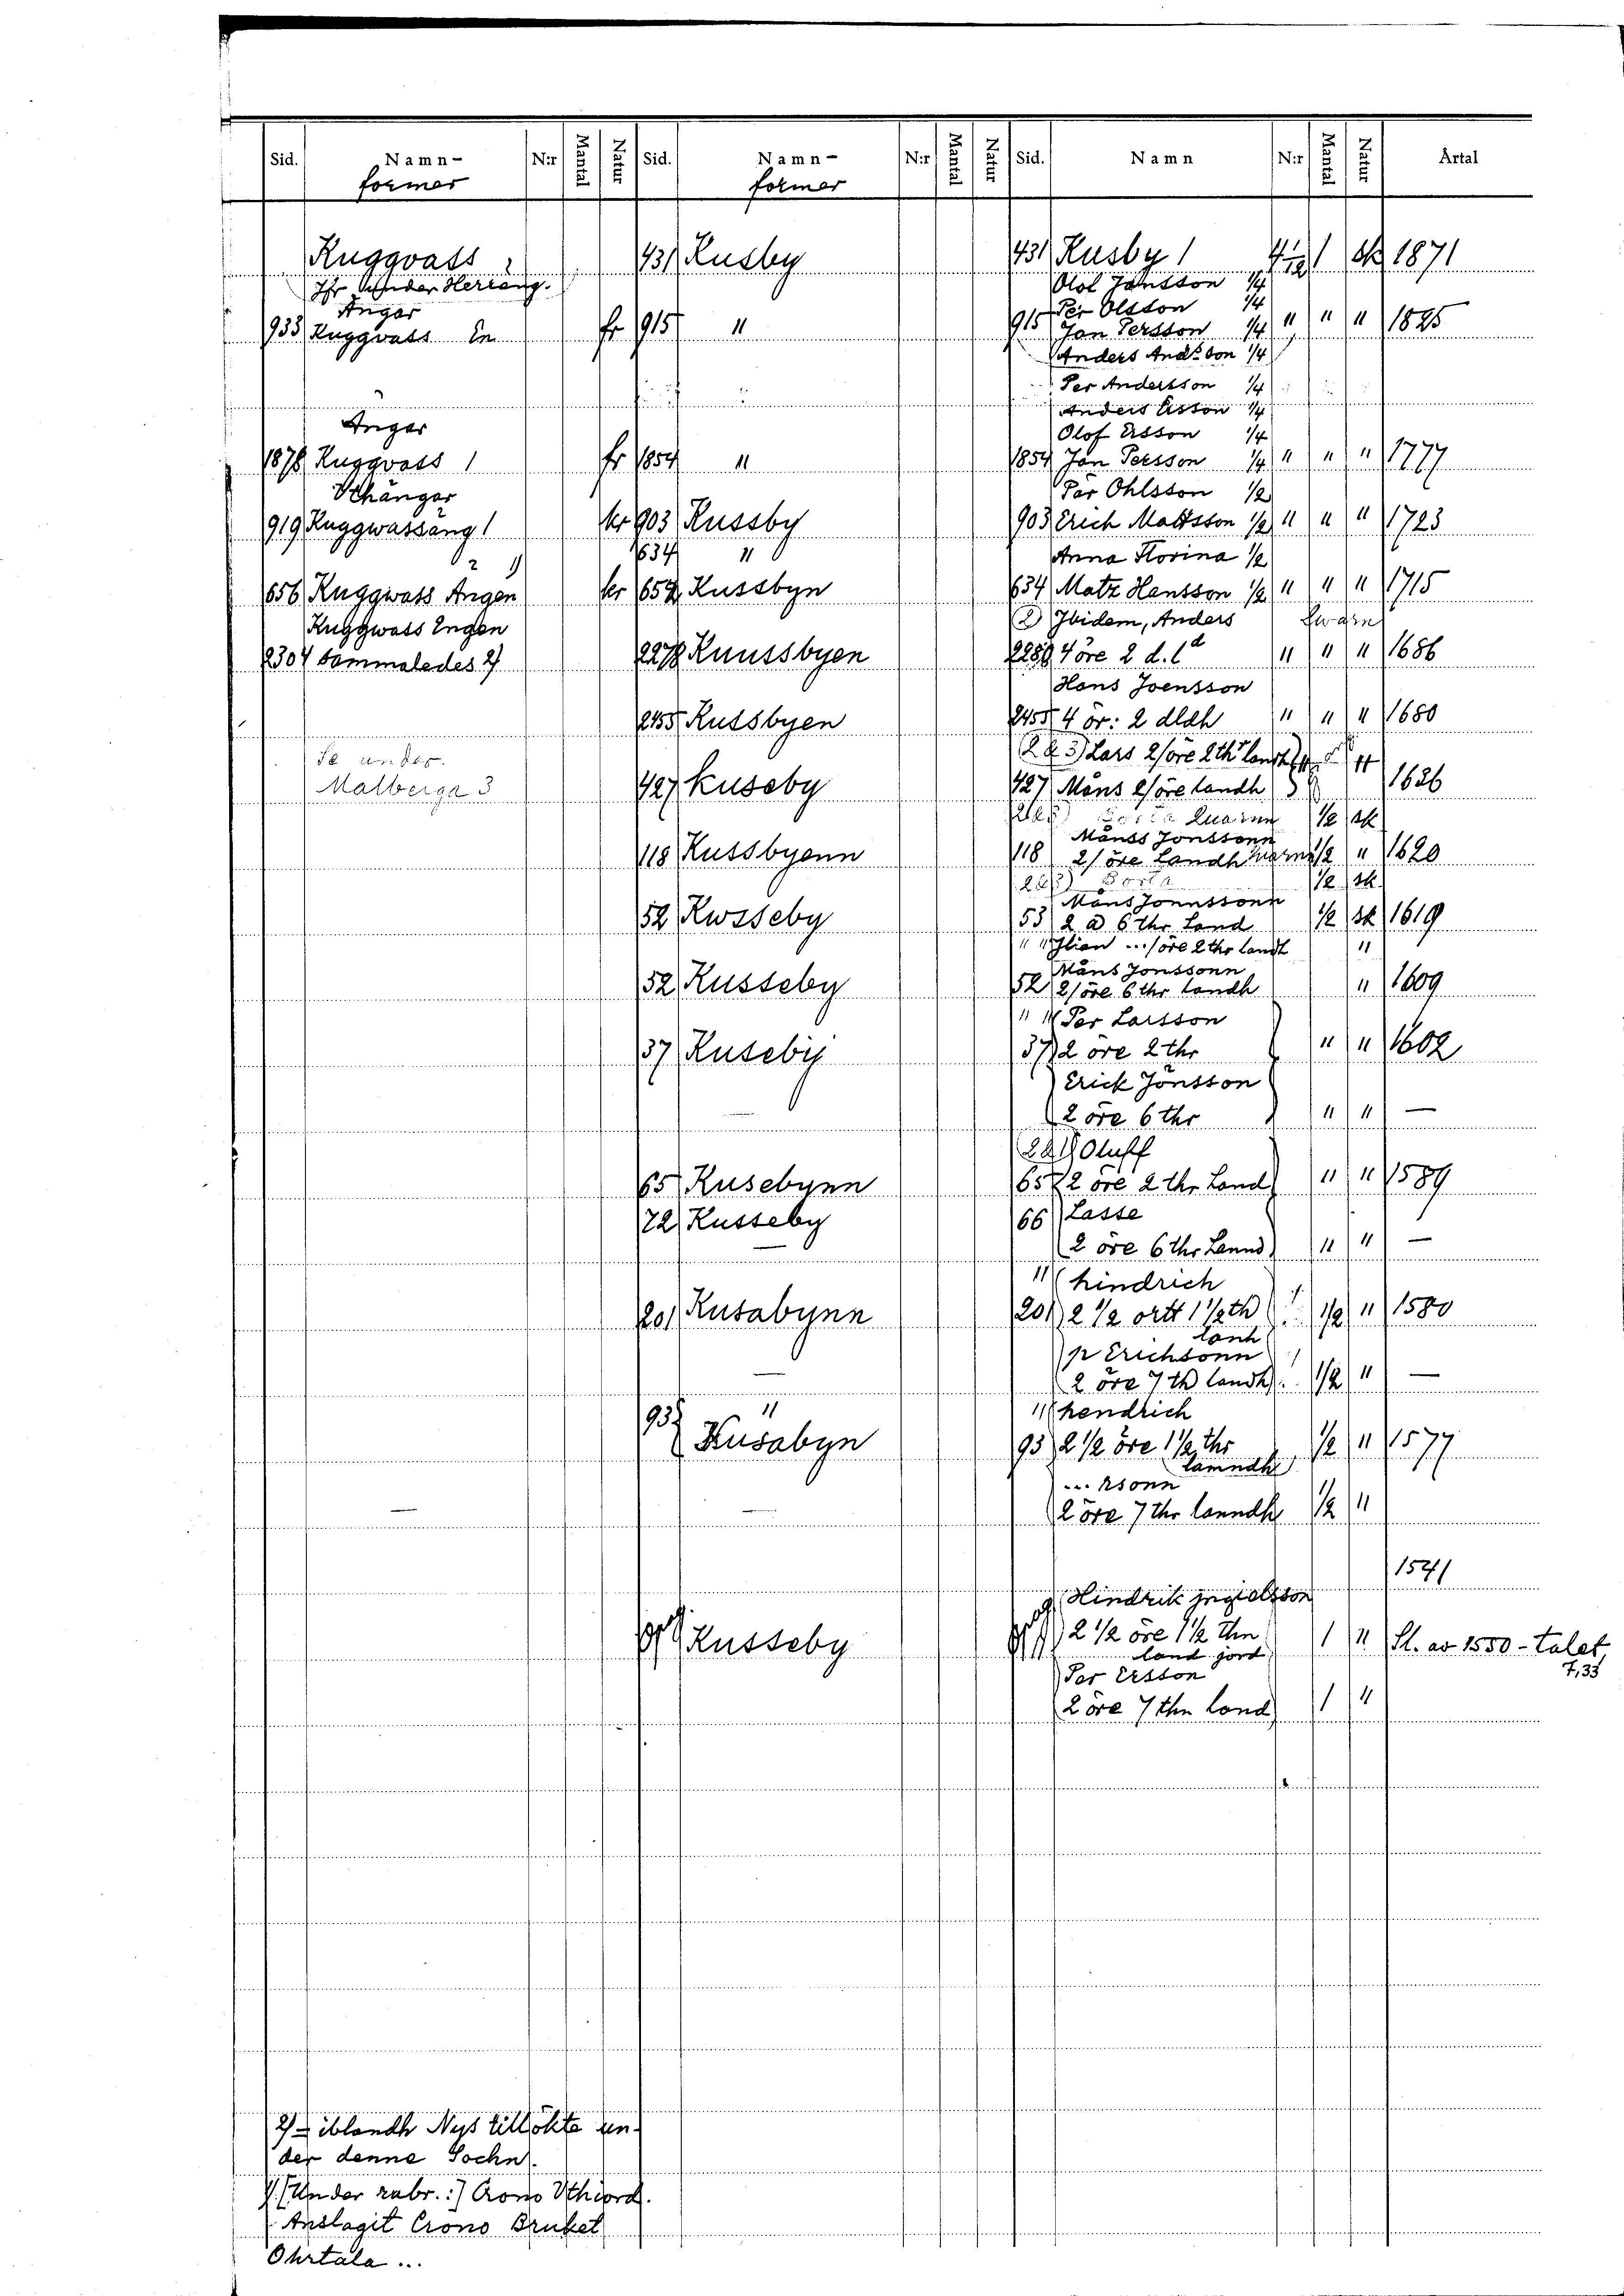 Sid. Namn- N:r Mantal Natur Sid. Namn- N:r Mantal Natur Sid. Namn N:r Mantal Natur Årtal
former former
Ruggvass 431 Rusby 431 Rusby 1 Sk 1871
under Herräng. Olof Jansson 1/4
Ängar Per Olsson 1/4
933 Ruggvass En fr 915 " 915 Jan Persson 1/4 " " " 1825
Anders And:sson 1/4
Per Andersson 1/4
Anders Ersson 1/4
Änger Olof Ersson 1/4
1876 Ruggvass 1 fr 1854 " 1854 Jan Persson 1/4 " " " 1777
Uthängar Pär Ohlsson 1/2
919 Ruggwassäng 1 kr 903 Russby 903 Erich Mattsson 1/2 " " " 1723
2 1) 634 " Anna Florina 1/2
656 Ruggwass Ängen kr 652 Russbyn 634 Matz Hansson 1/2 " " " 1715
Ruggwass Engen 2) Ibidem, Anders
2304 sammaledes 2) 2278 Ruussbyen 2280 4 öre 2 d. l d " " " 1686
Hans Joensson
2455 Russbyen 2455 4 ör: 2 dldh " " " 1680
Se under (2 & 3) Lars 2/öre 2th landh
Malberga 3 427 Ruseby 427 Måns 2/öre landh 1626
Quarnn 1/2 Sk
Månss Jonssonn
118 Russbyenn 118 2/öre Landh 1/2 " 1620
1/2 Sk
Måns Jonnssonn
52 Rwsseby 53 2 a 6 thr Land 1/2 Sk 1619
" ... /öre 2 thr landt "
Måns Jonssonn
52 Russeby 52 2/öre 6 thr landh " 1609
" Per Larsson
37 Rusebij 37 2 öre 2 thr " " 1602
Erick Jönsson
2 öre 6 thr " " —
Oluff
65 Rusebynn 65 2 öre 2 thr Land " " 1589
72 Russeby 66 Lasse
— 2 öre 6 thr Lannd " " —
" hindrich
201 Rusabynn 201 2 1/2 ortt 1 1/2 th 1/2 " 1580
lanh
p Erichsonn
— 2 öre 7 th landh 1/2 " —
93 " " hendrich
Rusabyn 93 2 1/2 öre 1 1/2 thr 1/2 " 1577
lamndh
... rsonn
— — 2 öre 7 thr lanndh 1/2 "
1541
Hindrik ingielsson
Russeby 2 1/2 öre 1 1/2 thn 1 " Sl. av 1550-talet,
land jord 7,33
Per Ersson
2 öre 7 thn land 1 "
2) = iblandh Nys tillökte un-
der denne Sochn.
1) [Under rubr.:] Crono Uthiord.
Anslagit Crono Bruket
Ohrtala ...